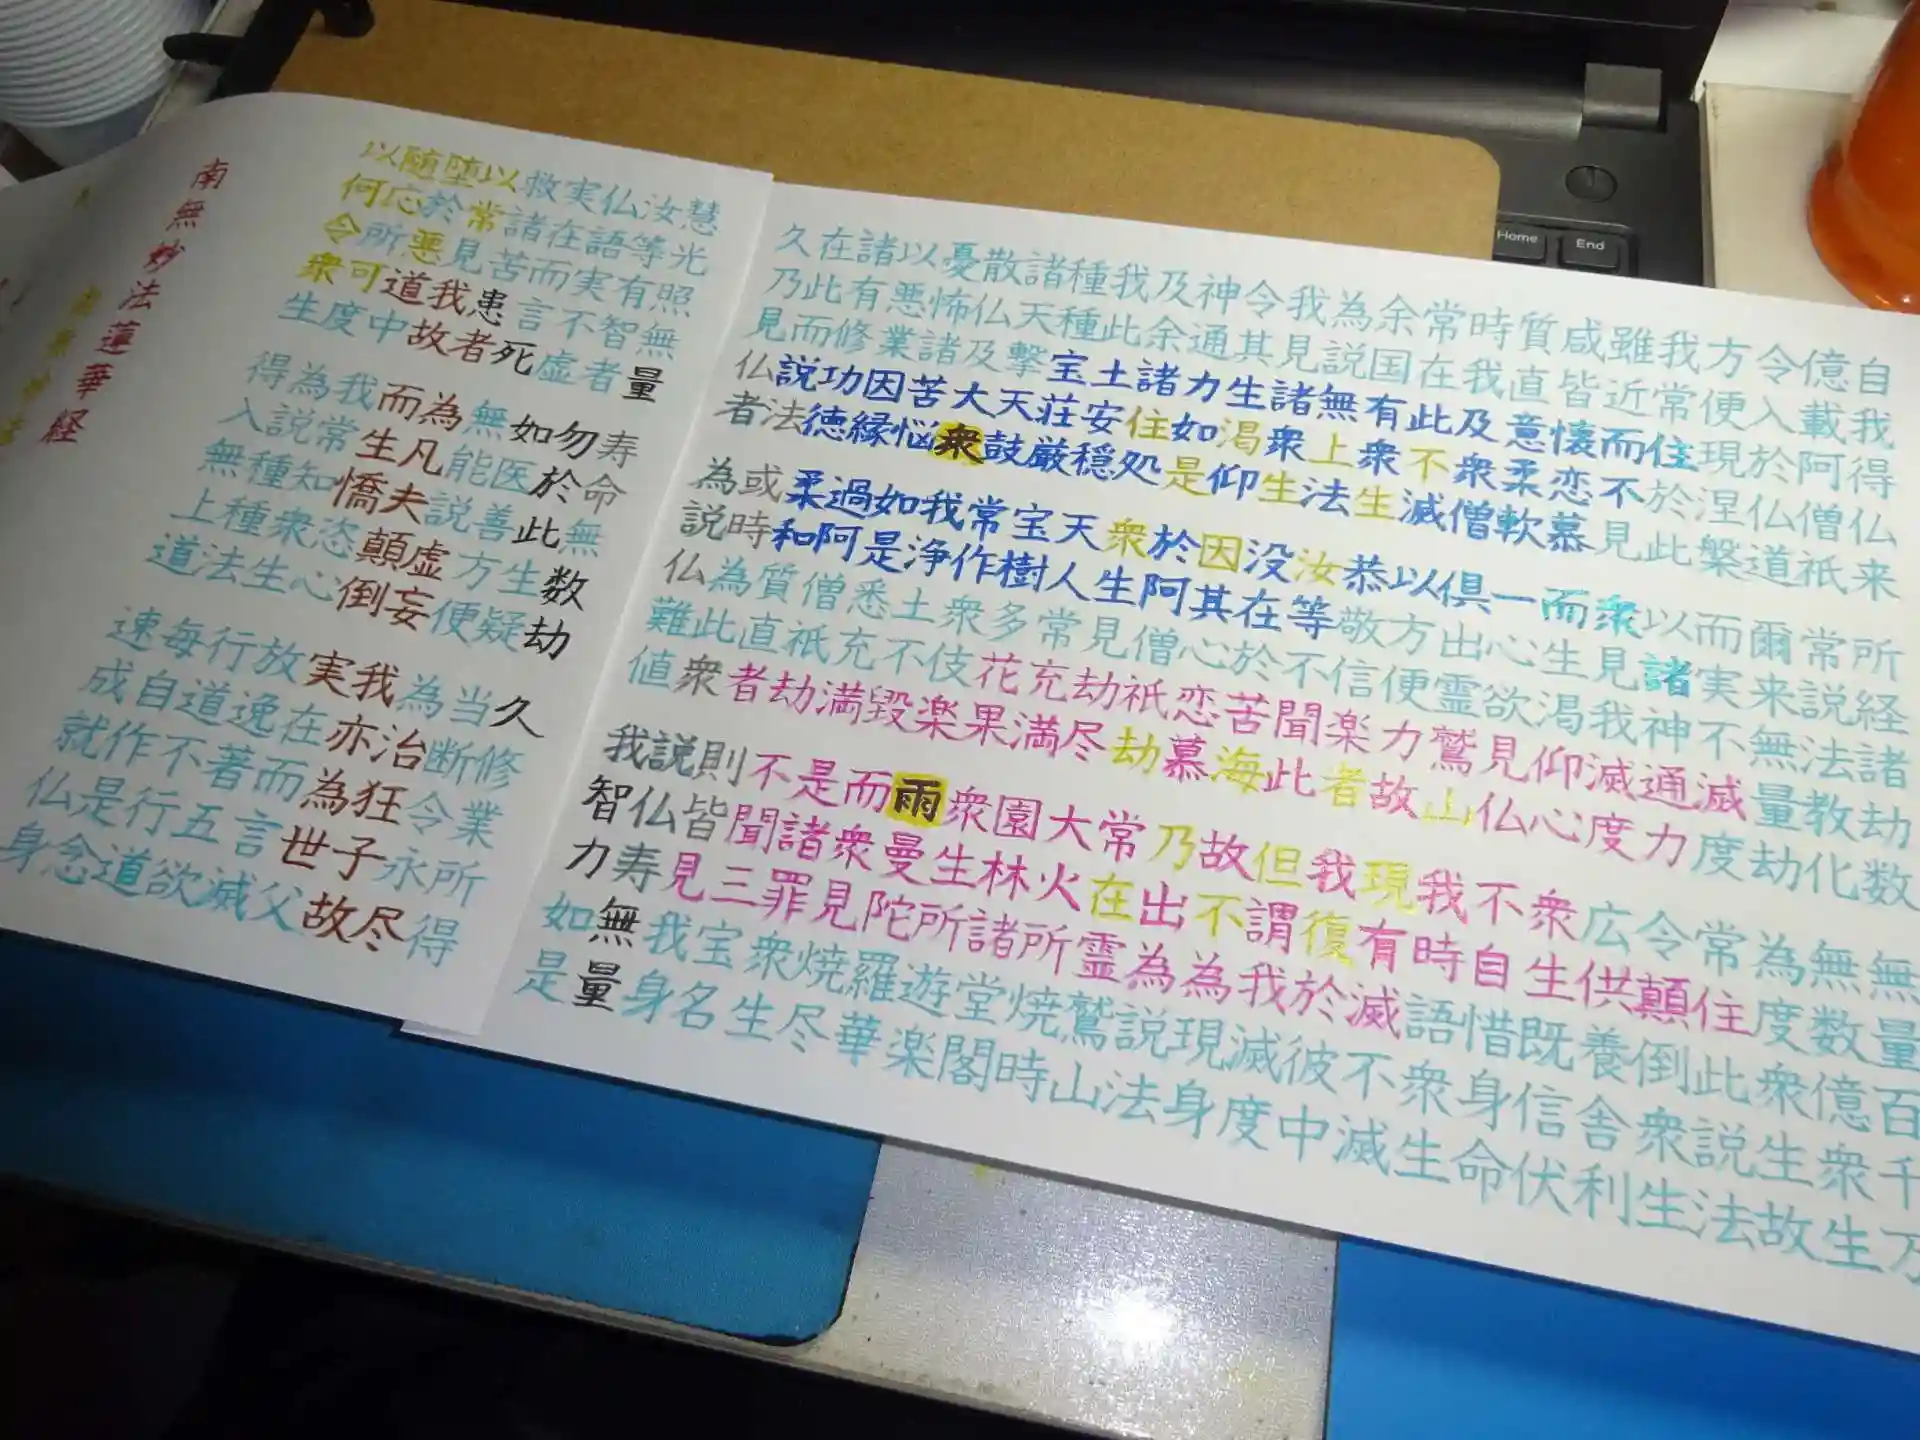 自我得仏来所経諸劫数無量百千万
億載阿僧祇常説法教化無数億衆生
令入於仏道爾来無量劫為度衆生故
方便現涅槃而実不滅度常住此説法
我常住於此以諸神通力令顛倒衆生
雖近而不見衆見我滅度広供養舎利
咸皆懐恋慕而生渇仰心衆生既信伏
質直意柔軟一心欲見仏不自惜身命
時我及衆僧俱出霊鷲山我時語衆生
常在此不滅以方便力故現有滅不滅
余国有衆生恭敬信楽者我復於彼中
為説無上法汝等不聞此但謂我滅度
我見諸衆生没在於苦海故不為現身
令其生渇仰因其心恋慕乃出為説法
神通力如是於阿僧祇劫常在霊鷲山
及余諸住処衆生見劫尽大火所焼時
我此土安穏天人常充満園林諸堂閣
種種宝荘厳宝樹多花果衆生所遊楽
諸天撃天鼓常作衆伎楽雨曼陀羅華
散仏及大衆我浄土不毀而衆見焼尽
憂怖諸苦悩如是悉充満是諸罪衆生
以悪業因縁過阿僧祇劫不聞三宝名
諸有修功徳柔和質直者則皆見我身
在此而説法或時為此衆説仏寿無量
久乃見仏者為説仏難値我智力如是
慧光照無量寿命無数劫久修業所得
汝等有智者勿於此生疑当断令永尽
仏語実不虚如医善方便為治狂子故
実在而言死無能説虚妄我亦為世父
救諸苦患者為凡夫顛倒実在而言滅
以常見我故而生憍恣心放逸著五欲
堕於悪道中我常知衆生行道不行道
随応所可度為説種種法毎自作是念
以何令衆生得入無上道速成就仏身
南無妙法蓮華経
Home
End